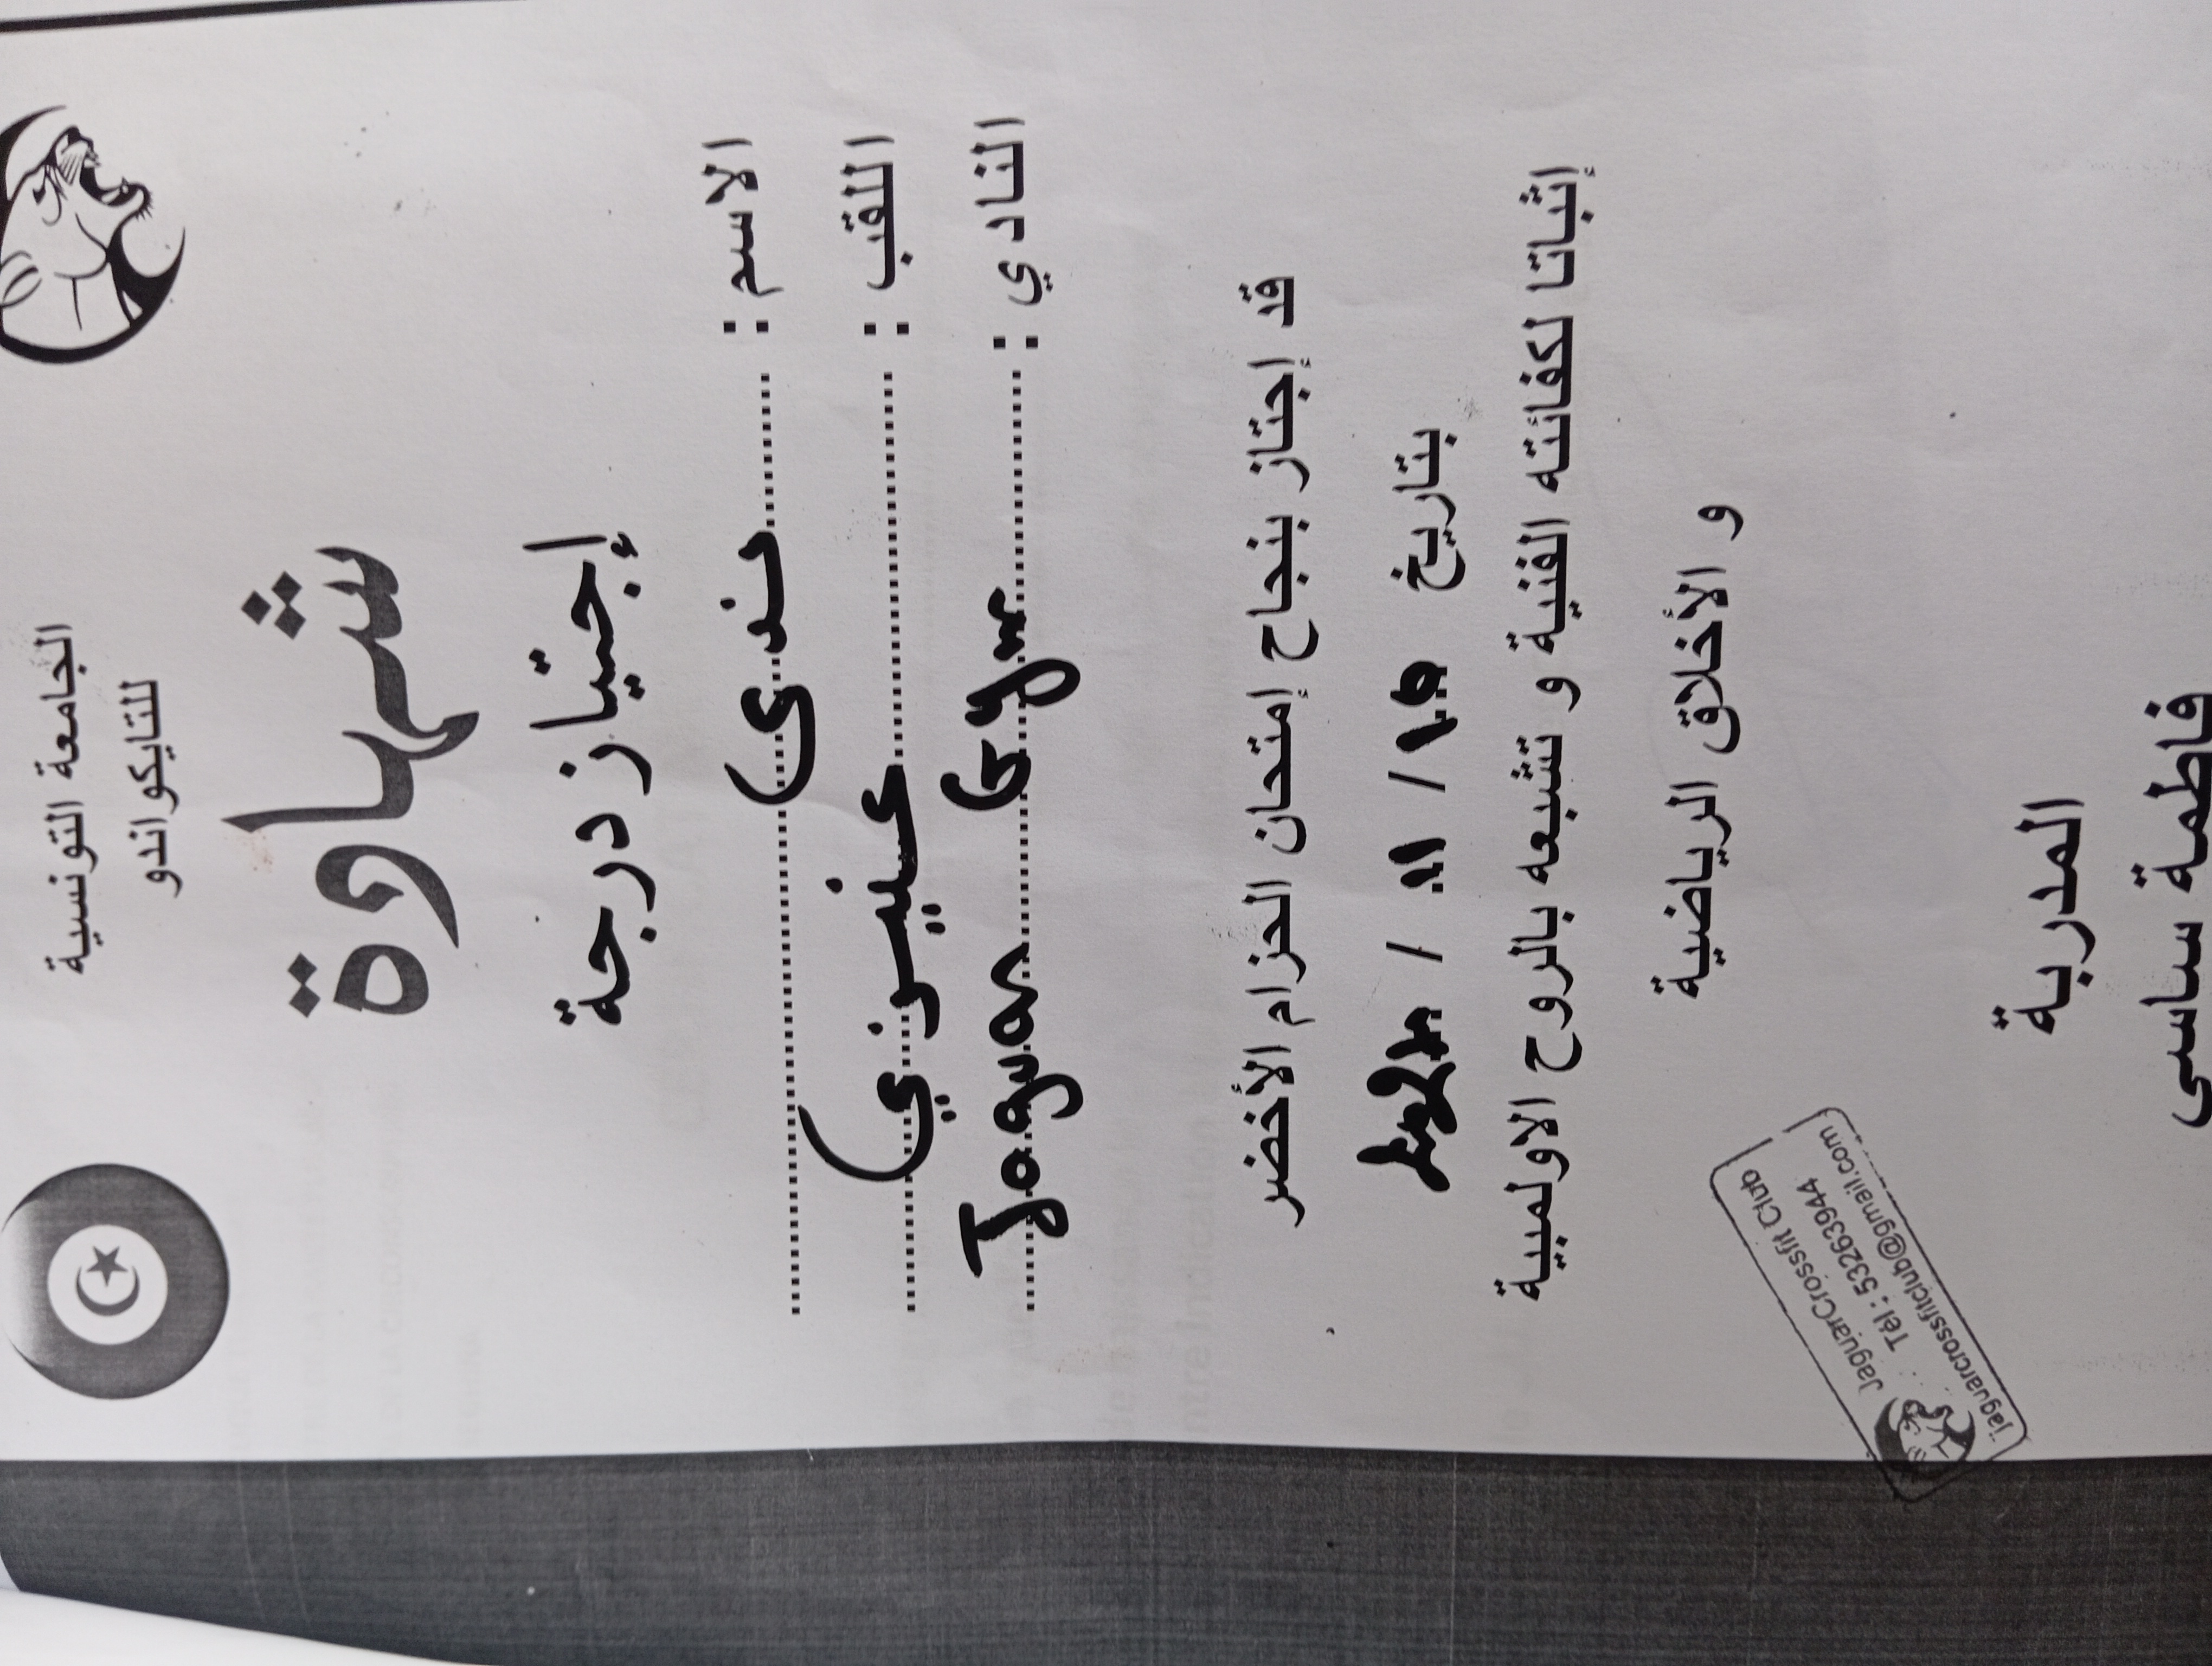 الجامعة التونسية
للتايكواندو
شهادة
إجتياز درجة
الاسم : ندى
اللقب : عنيزي
النادي : Jaguar Gym
قد إجتاز بنجاح إمتحان الحزام الأخضر
بتاريخ 10 / 11 /
إثباتا لكفائته الفنية و تشبعه بالروح الاولمبية
و الأخلاق الرياضية
المدربة
فاطمة ساسي
JaguarCrossfit Club
Tél : 53263944
jaguarcrossfitclub@gmail.com